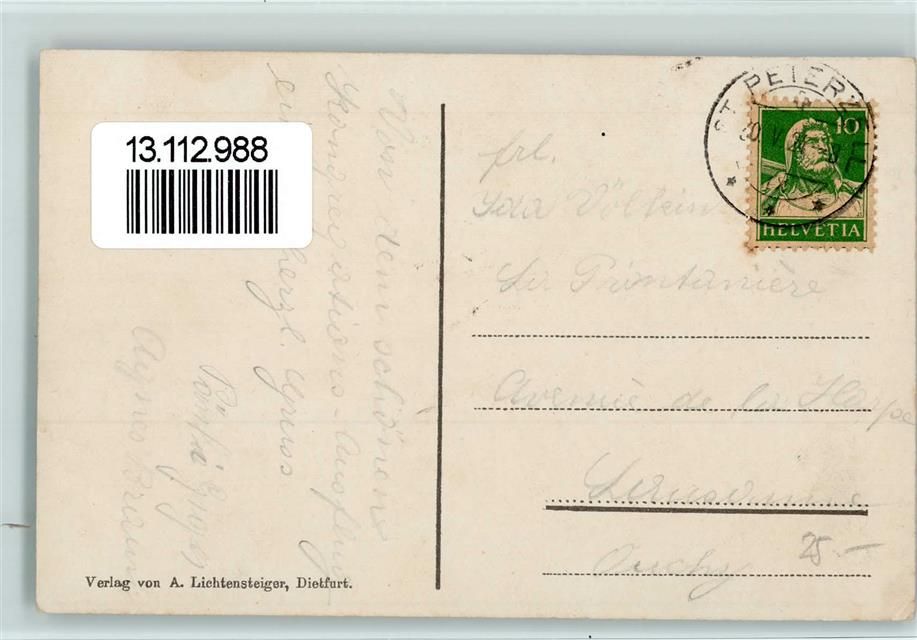 13.112.988
Von dem schönen
Kongregations-Ausflug
ein herzl. Gruss
Agnes
frl.
Ida
La Printanière
Avenue de la Harpe
Lausanne
Ouchy
25.—
ST. PETERZELL
20. V.
10
HELVETIA
Verlag von A. Lichtensteiger, Dietfurt.